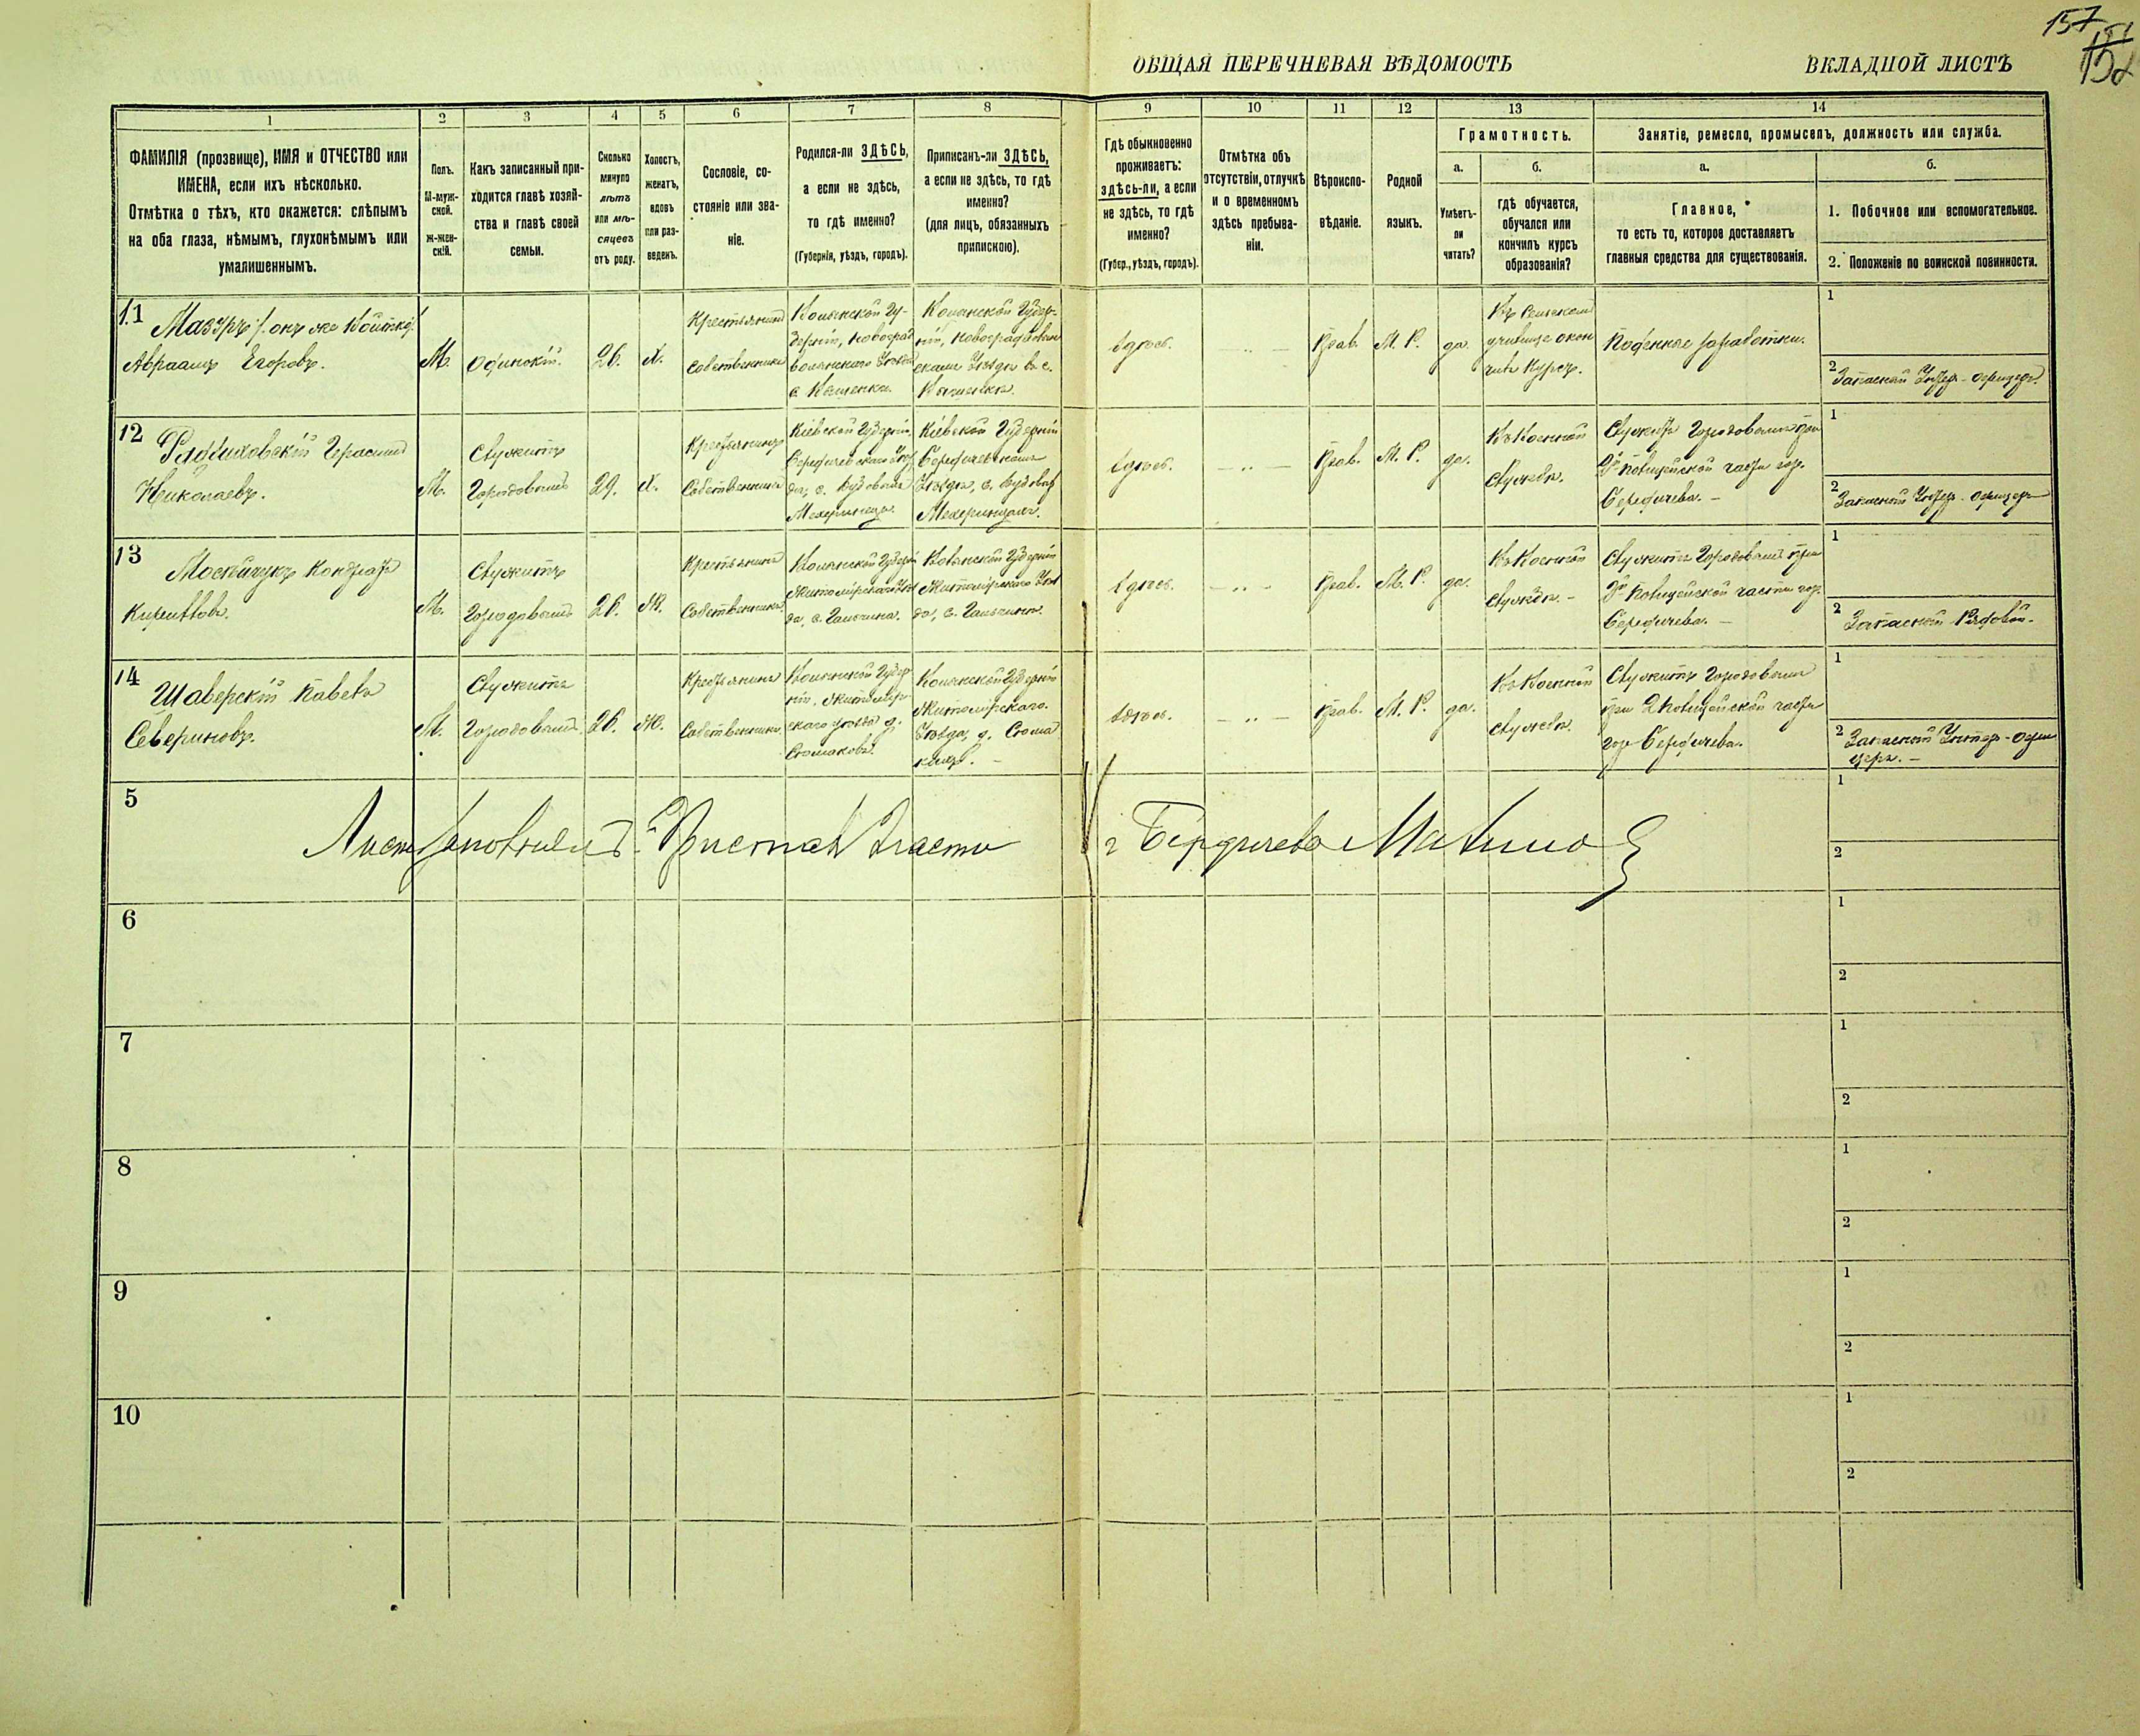 157
152
ОБЩАЯ ПЕРЕЧНЕВАЯ ВѢДОМОСТЬ
ВКЛАДНОЙ ЛИСТЪ
1
2
3
4
5
6
7
8
9
10
11
12
13
14
ФАМИЛІЯ (прозвище), ИМЯ и ОТЧЕСТВО или
ИМЕНА, если ихъ нѣсколько.
Отмѣтка о тѣхъ, кто окажется: слѣпымъ
на оба глаза, нѣмымъ, глухонѣмымъ или
умалишеннымъ.
Полъ.
М-муж-
ской.
ж-жен-
скій.
Какъ записанный при-
ходится главѣ хозяй-
ства и главѣ своей
семьи.
Сколько
минуло
лѣтъ
или мѣ-
сяцевъ
отъ роду.
Холостъ,
женатъ,
вдовъ
или раз-
веденъ.
Сословіе, со-
стояніе или зва-
ніе.
Родился-ли ЗДѢСЬ,
а если не здѣсь,
то гдѣ именно?
(Губернія, уѣздъ, городъ).
Приписанъ-ли ЗДѢСЬ,
а если не здѣсь, то гдѣ
именно?
(для лицъ, обязанныхъ
припискою).
Гдѣ обыкновенно
проживаетъ:
здѣсь-ли, а если
не здѣсь, то гдѣ
именно?
(Губер., уѣздъ, городъ).
Отмѣтка объ
отсутствіи, отлучкѣ
и о временномъ
здѣсь пребыва-
ніи.
Вѣроиспо-
вѣданіе.
Родной
языкъ.
Грамотность.
а.
Умѣетъ-
ли
читать?
б.
гдѣ обучается,
обучался или
кончилъ курсъ
образованія?
Занятіе, ремесло, промыселъ, должность или служба.
а.
Главное,
то есть то, которое доставляетъ
главныя средства для существованія.
б.
1. Побочное или вспомогательное.
2. Положеніе по воинской повинности.
11
Авраамъ Егоровъ.
М.
Одинокій.
26.
Х.
Крестьянинъ
собственникъ
Волынской Гу-
берніи, Новоград
волынского Уѣзда
Волынской Губер-
ніи,
здѣсь.
— „ —
Прав.
М. Р.
да.
училище окон
чилъ Курсъ.
Поденные заработки.
1
2 Запасной Унтер-офицеръ.
12
Герасимъ
Николаевъ.
М.
Служитъ
Городовымъ
29.
Х.
Крестьянинъ
Собственникъ
Кіевской Губерніи,
Бердичевскаго Уѣз
да, с.
Кіевской Губерніи
Бердичевскаго
Уѣзда, с.
здѣсь.
— „ —
Прав.
М. Р.
да.
Въ Военной
службѣ.
Служитъ Городовымъ при
2й Полицейской части гор.
Бердичева. —
1
2 Запасной Унтер-офицеръ
13
Москвичукъ Кондратъ
Кирилловъ.
М.
Служитъ
Городовымъ
26.
Ж.
Крестьянинъ
Собственникъ
Волынской Губерніи
Житомірскаго Уѣз
да, с.
Волынской Губерніи
Житомірскаго Уѣз
да, с.
здѣсь.
— „ —
Прав.
М. Р.
да.
Въ Военной
службѣ. —
Служитъ Городовымъ при
2й Полицейской части гор.
Бердичева. —
1
2 Запасной Рядовой.
14
Шаверскій Павелъ
Севериновъ.
М.
Служитъ
Городовымъ
26.
Ж.
Крестьянинъ
Собственникъ.
Волынской Губер
ніи, Житомір-
скаго уѣзда д.
Волынской Губерніи
Житомірскаго
Уѣзда, д.
здѣсь.
— „ —
Прав.
М. Р.
да.
Въ Военной
службѣ.
Служитъ Городовымъ
при 2 Полицейской части
гор Бердичева.
1
2 Запасной Унтер-офи
церъ. —
5
Приставъ 2 части
г Бердичева
1
2
6
1
2
7
1
2
8
1
2
9
1
2
10
1
2